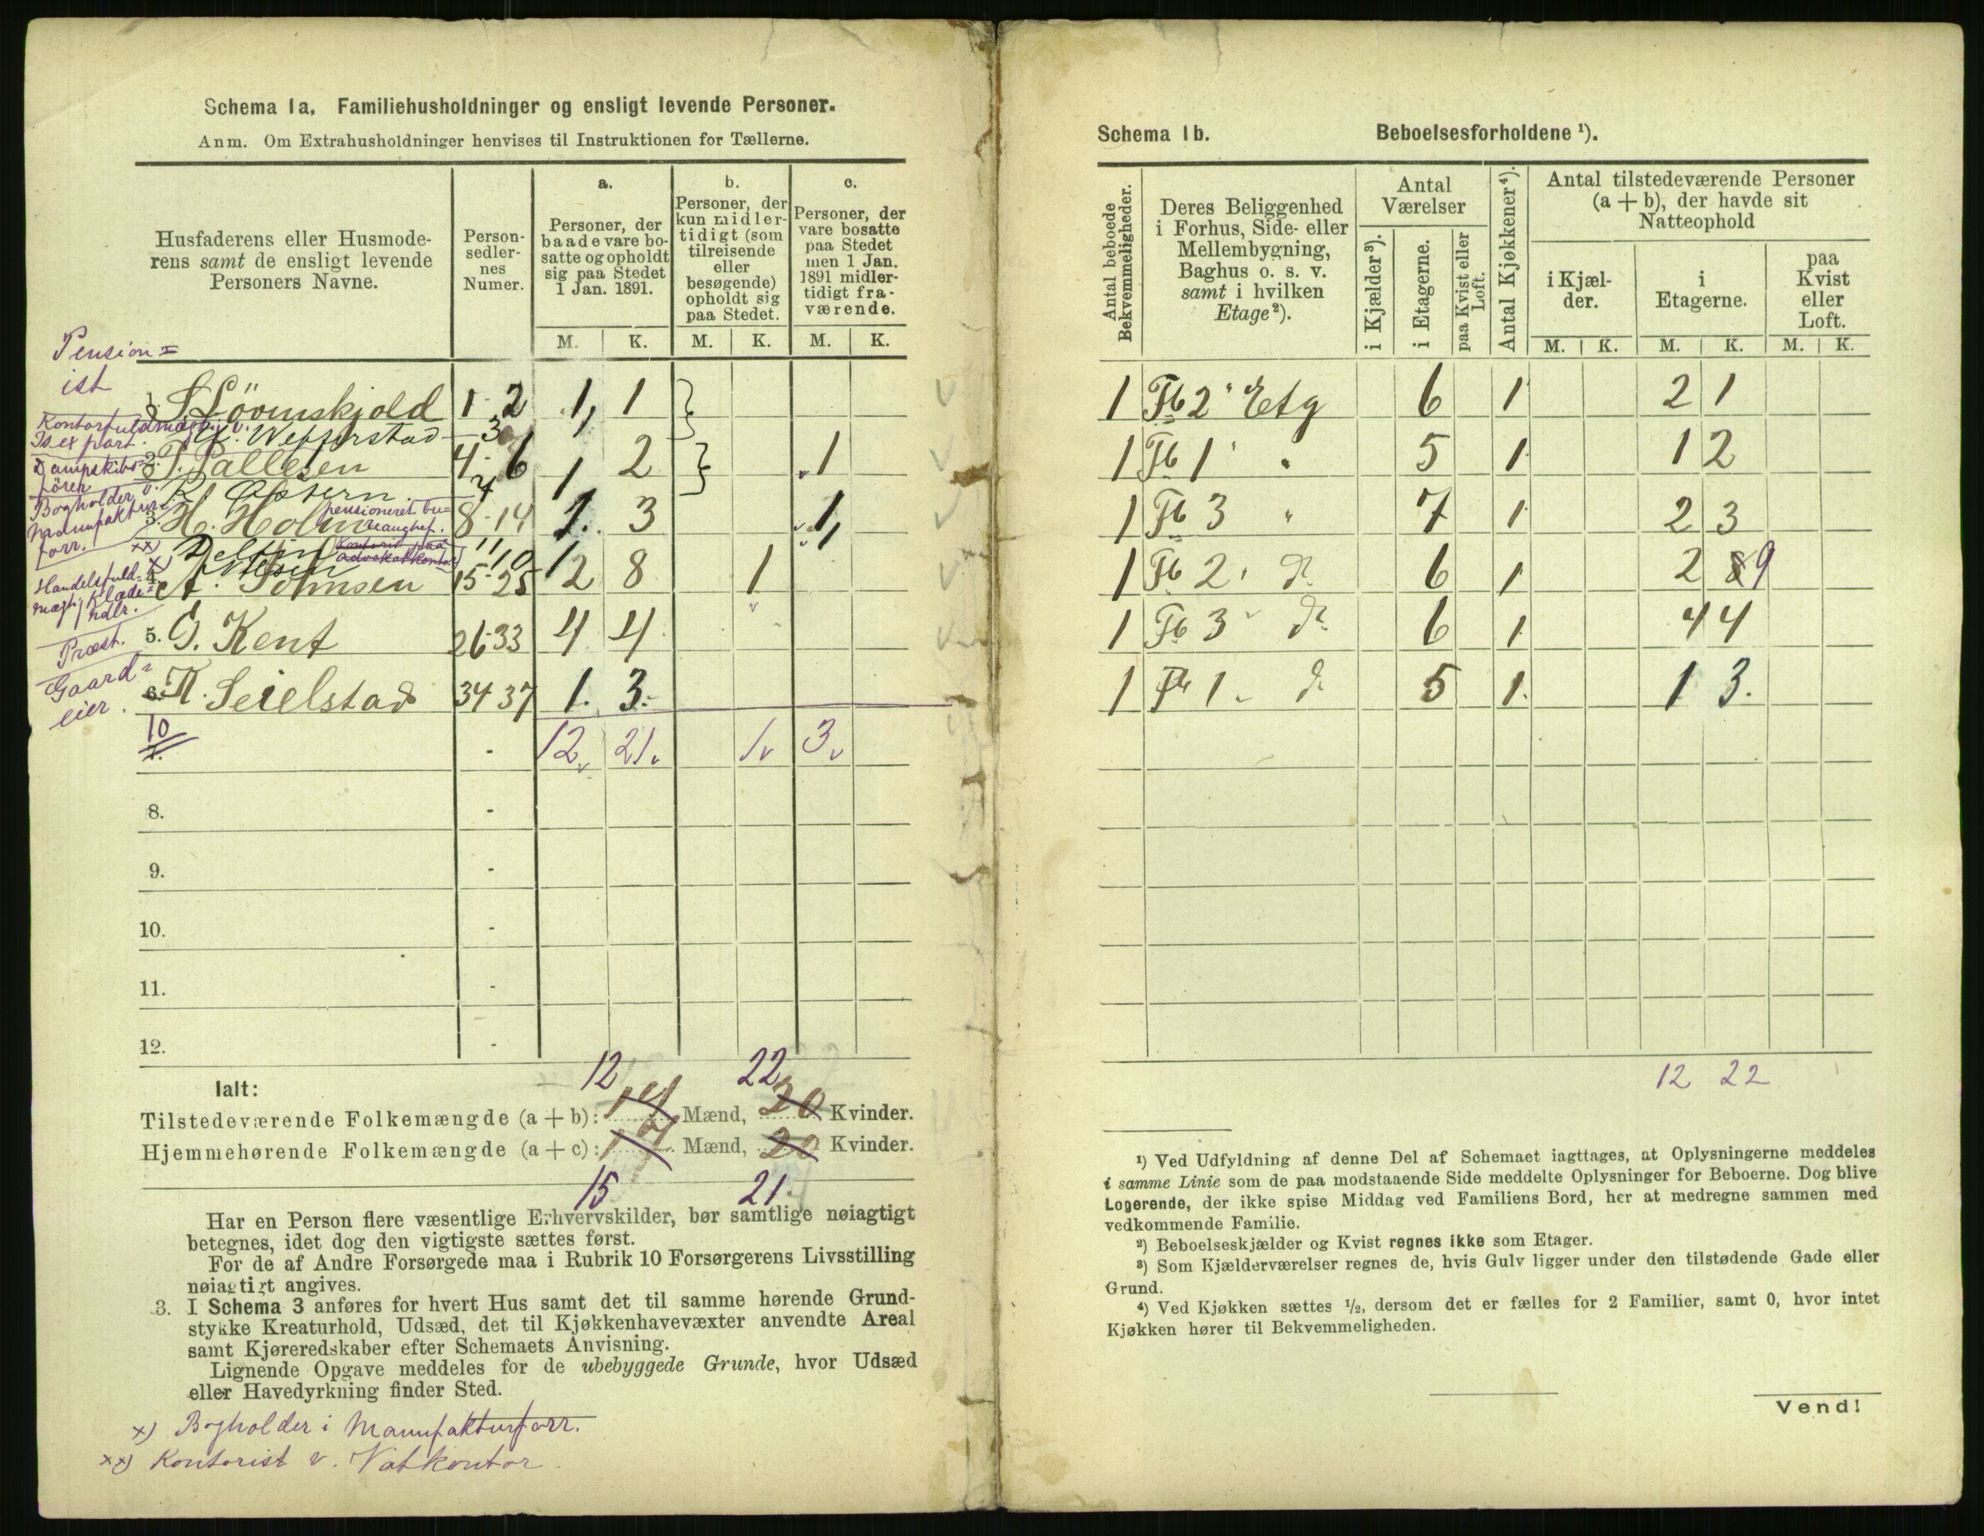 Schema 1a. Familiehusholdninger og ensligt levende Personer.
Anm. Om Extrahusholdninger henvises til Instruktionen for Tællerne.
Husfaderens eller Husmode-
rens samt de ensligt levende
Personers Navne.
Person-
sedler-
nes
Numer.
a.
Personer, der
baade vare bo-
satte og opholdt
sig paa Stedet
1 Jan. 1891.
b.
Personer, der
kun midler-
tidigt (som
tilreisende
eller
besøgende)
opholdt sig
paa Stedet.
c.
Personer, der
vare bosatte
paa Stedet
men 1 Jan.
1891 midler-
tidigt fra-
værende.
M. K. M. K. M. K.
Pension=
ist
1. S Lövenskjold 1-2 1, 1
Kontorfuldmægtig v.
Weffrstad 3
3. T. Pallesen 4-6 1 2 1
R. Opstern. 7
Bogholder v.
Manufaktur
forr.
3. H. Holm 8-14 1. 3 1,
pensioneret bu=
reauchef.
4. A. Johnsen 15-25 2 8 1
Handelsfuld=
mægt. i Klæde=
hdlr.
5. G. Kent 26-33 4 4
Præst.
6. K. Seielstad 34 37 1. 3.-
Gaard=
eier.
10
7. - 12 21 1 3
8. -
9. -
10. -
11. -
12. -
Ialt:
12 22
Tilstedeværende Folkemængde (a + b): 14 Mænd, 20 Kvinder.
Hjemmehørende Folkemængde (a + c): 17 Mænd, 20 Kvinder.
15 21.
Har en Person flere væsentlige Erhvervskilder, bør samtlige nøiagtigt
betegnes, idet dog den vigtigste sættes først.
For de af Andre Forsørgede maa i Rubrik 10 Forsørgerens Livsstilling
nøiagtigt angives.
3. I Schema 3 anføres for hvert Hus samt det til samme hørende Grund-
stykke Kreaturhold, Udsæd, det til Kjøkkenhavevæxter anvendte Areal
samt Kjøreredskaber efter Schemaets Anvisning.
Lignende Opgave meddeles for de ubebyggede Grunde, hvor Udsæd
eller Havedyrkning finder Sted.
x) Bogholder i Manufakturforr.
xx) Kontorist v. Vatkontor
Schema 1b. Beboelsesforholdene ¹).
Antal beboede
Bekvemmeligheder.
Deres Beliggenhed
i Forhus, Side- eller
Mellembygning,
Baghus o. s. v.
samt i hvilken
Etage ²).
Antal
Værelser
i Kjælder ³).
i Etagerne.
paa Kvist eller
Loft.
Antal Kjøkkener ⁴).
Antal tilstedeværende Personer
(a + b), der havde sit
Natteophold
i Kjæl-
der.
i
Etagerne.
paa
Kvist
eller
Loft.
M. K. M. K. M. K.
1 Fb 2 Etg 6 1 2 1
1 Fb 1 " 5 1 1 2
1 Fb 3 " 7 1 2 3
1 Fb 2 do 6 1 2 8 9
1 Fb 3 do 6 1 4 4
1 Fb 1 do 5 1. 1 3.
12 22
¹) Ved Udfyldning af denne Del af Schemaet iagttages, at Oplysningerne meddeles
i samme Linie som de paa modstaaende Side meddelte Oplysninger for Beboerne. Dog blive
Logerende, der ikke spise Middag ved Familiens Bord, her at medregne sammen med
vedkommende Familie.
²) Beboelseskjælder og Kvist regnes ikke som Etager.
³) Som Kjælderværelser regnes de, hvis Gulv ligger under den tilstødende Gade eller
Grund.
⁴) Ved Kjøkken sættes ½, dersom det er fælles for 2 Familier, samt 0, hvor intet
Kjøkken hører til Bekvemmeligheden.
Vend!